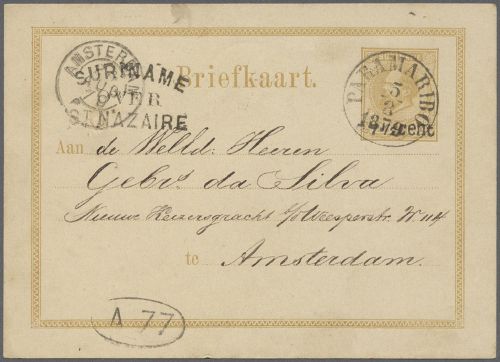 AMSTER
SURINAME
OVER
ST NAZAIRE
Briefkaart.
PARAMARIBO
5
3
1879
cent
Aan de WelEd: Heeren
Gebrs. da Silva
Nieuwe Keizersgracht Weesperstr.
te Amsterdam.
A 77